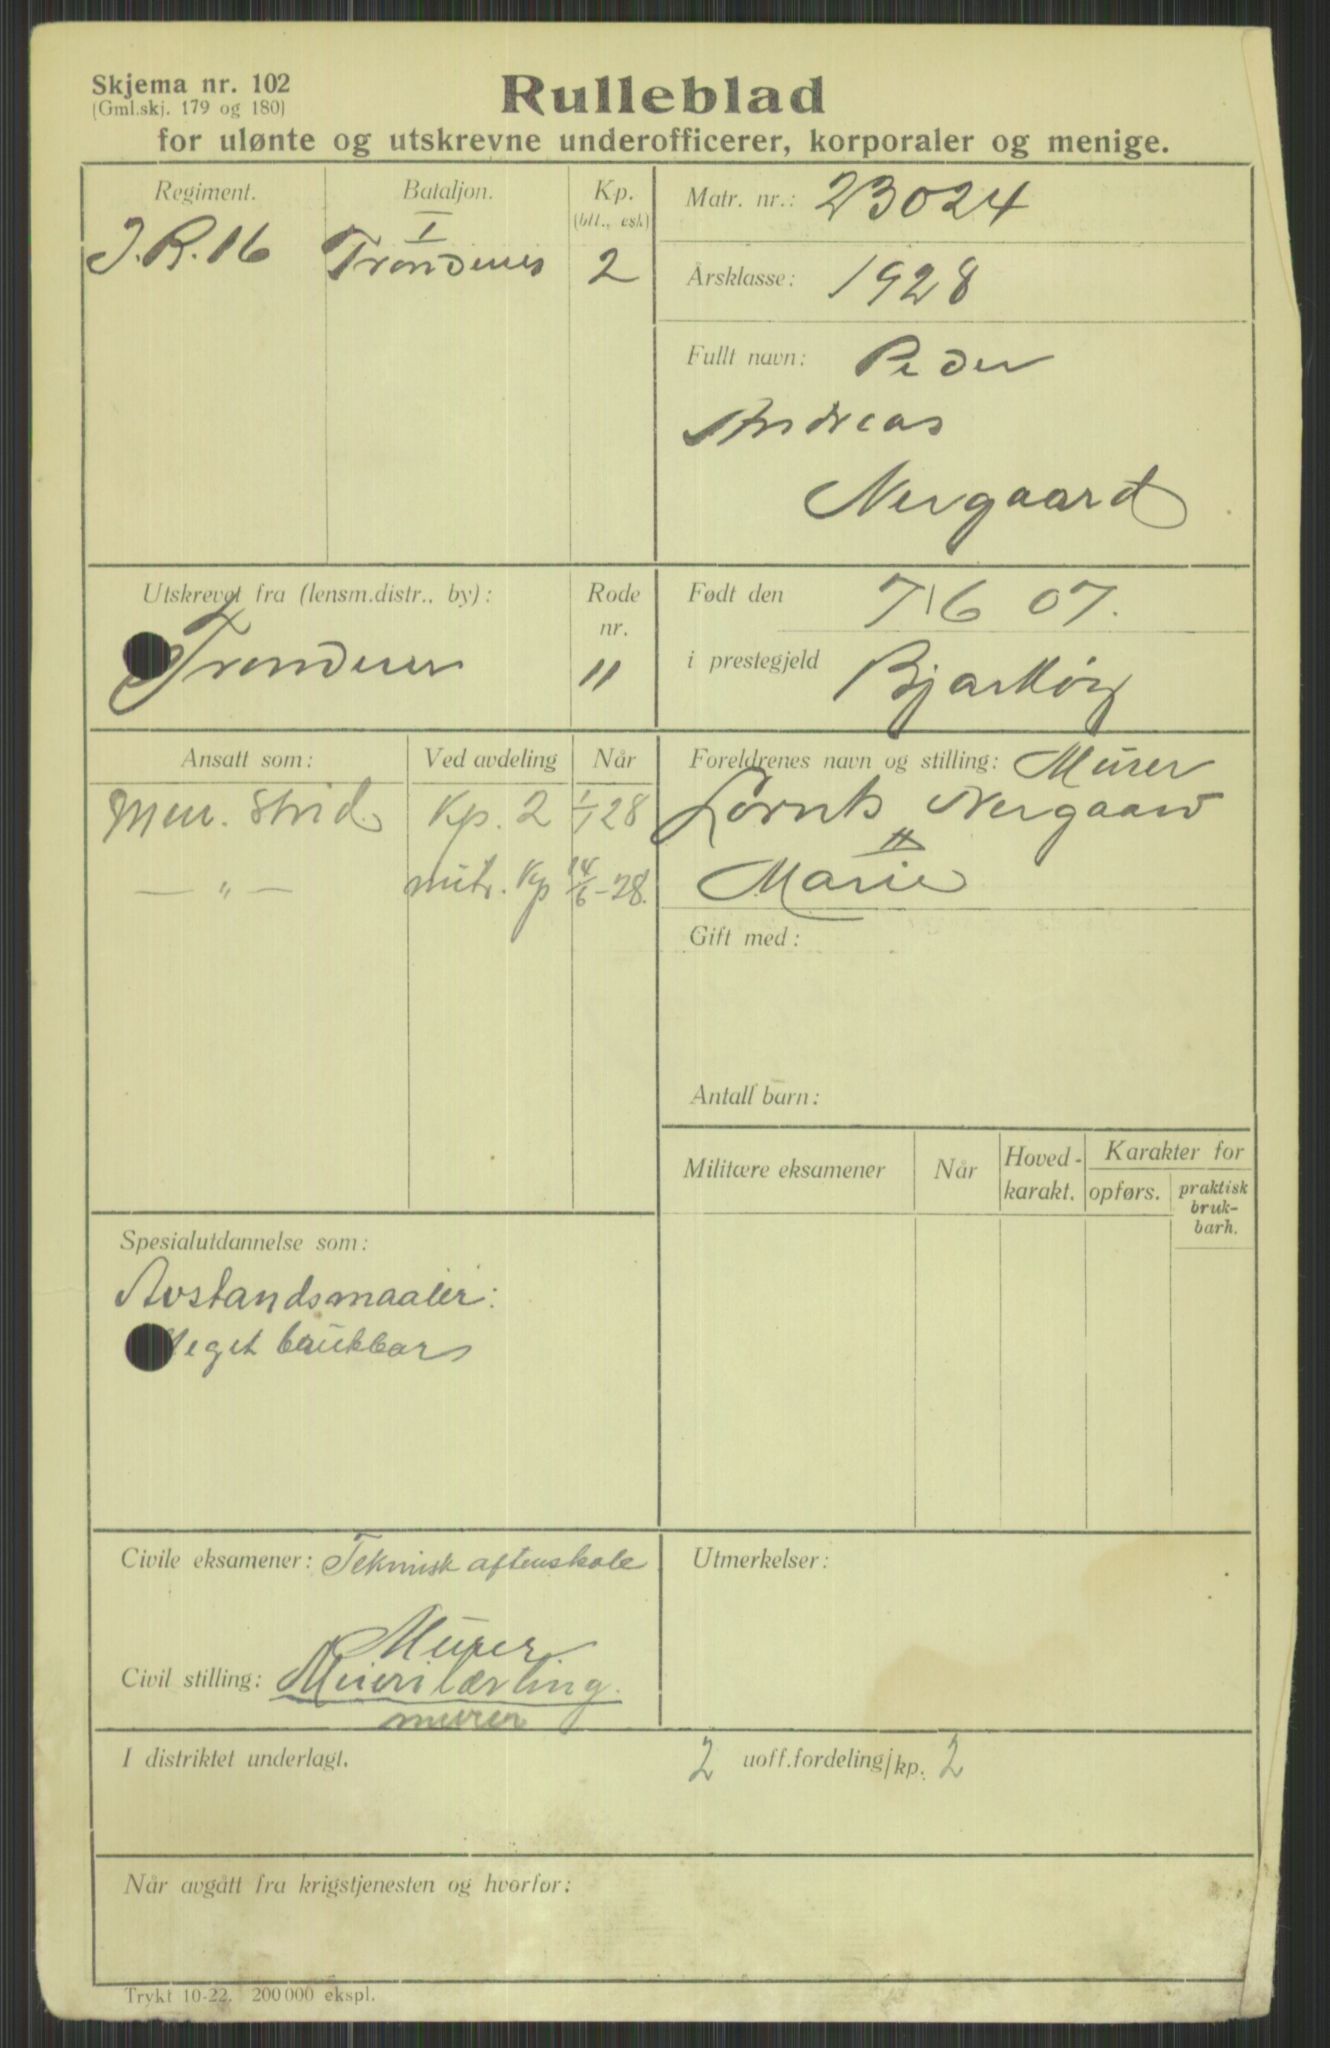 Skjema nr. 102
(Gml.skj. 179 og 180)
Rulleblad
for ulønte og utskrevne underofficerer, korporaler og menige.
Regiment.
J.R.16
Bataljon.
I
Trondenes
Kp.
(btt., esk)
2
Matr. nr.: 23024
Årsklasse: 1928
Fullt navn: Peder
Andreas
Nergaard
Utskrevet fra (lensm.distr., by):
Trondenes
Rode
nr.
11
Født den 7/6 07.
i prestegjeld Bjarkøy
Ansatt som:
Ved avdeling
Når
Men. Strid. Kp. 2 1/1 28
— " — mitr. Kp 14/6-28.
Foreldrenes navn og stilling: Murer
Lornts Nergaard
Marie
Gift med:
Antall barn:
Militære eksamener
Når
Hoved-
karakt.
Karakter for
opførs.
praktisk
bruk-
barh.
Spesialutdannelse som:
Avstandsmaaler:
Meget brukbar
Civile eksamener: Teknisk aftenskole
Murer
Civil stilling: Meierilærling.
murer
Utmerkelser:
I distriktet underlagt.
2 uoff.fordeling/kp. 2
Når avgått fra krigstjenesten og hvorfor:
Trykt 10-22. 200 000 ekspl.